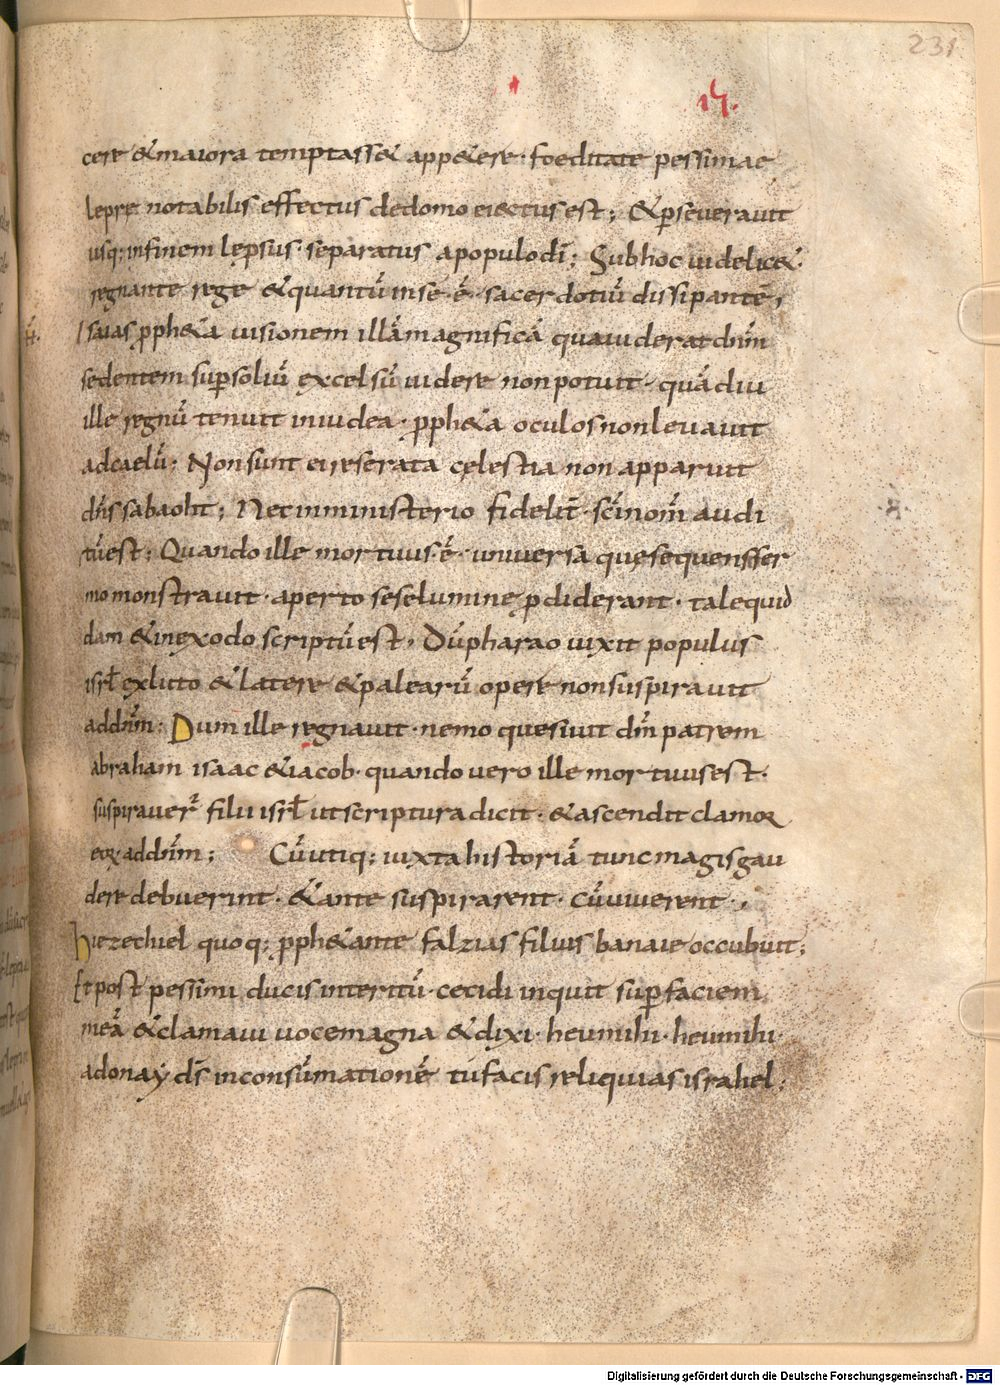 231
cere &maiora temptass& app&ere· foeditate pessimae
lepre notabilis effectus dedomo eiectus est; &pseverauit
usq; infinem lepsus· separatus apopulo dī; Subhoc uidelic&·
regnante rege &quantū inse·ē· sacerdotiū dissipante,
Isaias pph&a uisionem illā magnificā quauiderat dn̄m
sedentem supsoliū excelsū uidere nonpotuit· quādiu
ille regnū tenuit iniudea· pph&a oculos nonleuauit
adcaelū; Nonsunt ei reserata celestia non apparuit
dn̄s sabaoht; Necinministerio fidelit̄· sc̄i nom̄ audi
tū est; Quando ille mortuus·ē· universa quesequens ser
mo monstrauit· aperto seselumine pdiderant· talequid
dam &inexodo scriptū est, Dū pharao uixit populus
isrł exluto &latere &palearū opere nonsuspirauit
addn̄m: Dum ille regnauit· nemo quesiuit dm̄ patrem
abraham isaac &iacob· quando vero ille mortuus est·
suspirauer̄ filii isrł ut scriptura dicit· &ascendit clamor
eor· addn̄m; Cū utiq; iuxta historiā tunc magis gau
dere debuerint· &ante suspirarent· cū uiuerent·,
hiezechiel quoq; pph&ante falzias filius banaie occubuit;
Et post pessimi ducis interitū· cecidi inquit supfaciem
meā &clamaui uocemagna &dixi· heumihi· heumihi·
adonay ds̄ inconsūmationē tu facis reliquias israhel;
Digitalisierung gefördert durch die Deutsche Forschungsgemeinschaft - DFG